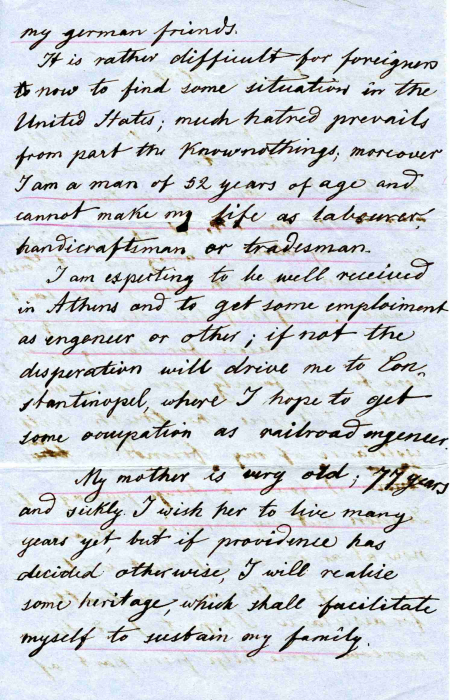 my german friends.
It is rather difficult for foreigners
now to find some situation in the
United States; much hatred prevails
from part the Knownothings; moreover
I am a man of 52 years of age and
cannot make my life as labourer,
handicraftsman or tradesman.
I am expecting to be well received
in Athens and to get some emploiment
as engeneer or other; if not the
disperation will drive me to Con-
stantinopel, where I hope to get
some ocupation as railroad engeneer.
My mother is very old; years
and sickly. I wish her to live many
years yet, but if providence has
decided otherwise, I will realise
some heritage, which shall facilitate
myself to sustain my family.